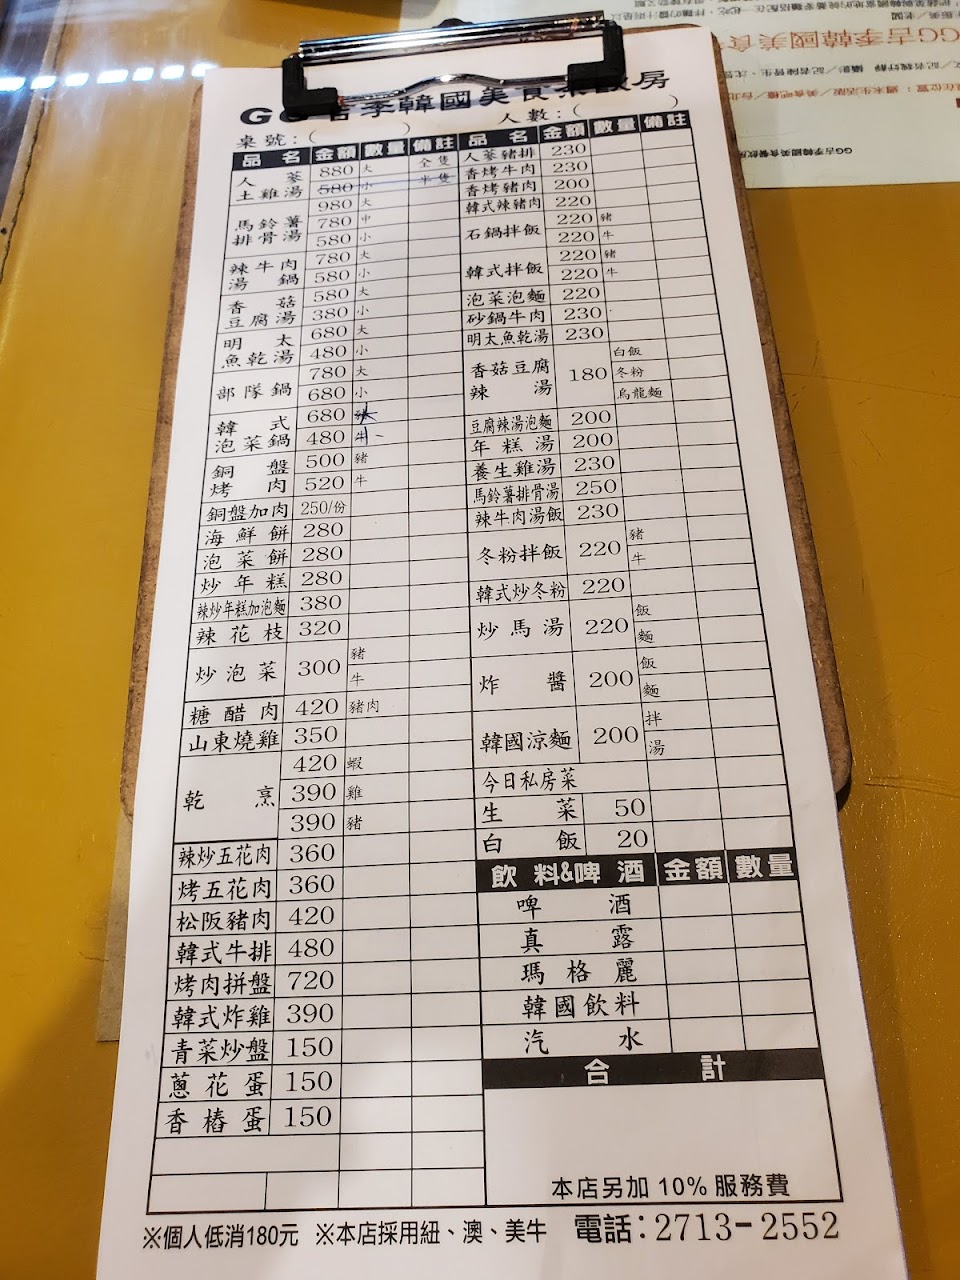 GG吉季韓國美食
房
桌號:( ) 人數:( )
品名 金額 數量 備註
人蔘土雞湯 880 大 全隻
580 小 半隻
馬鈴薯排骨湯 980 大
780 中
580 小
辣牛肉湯鍋 780 大
580 小
香菇豆腐湯 580 大
380 小
明太魚乾湯 680 大
480 小
部隊鍋 780 大
680 小
韓式泡菜鍋 680 豬
480 牛
銅盤烤肉 500 豬
520 牛
銅盤加肉 250/份
海鮮餅 280
泡菜餅 280
炒年糕 280
辣炒年糕加泡麵 380
辣花枝 320
炒泡菜 300 豬
牛
糖醋肉 420 豬肉
山東燒雞 350
乾烹 420 蝦
390 雞
390 豬
辣炒五花肉 360
烤五花肉 360
松阪豬肉 420
韓式牛排 480
烤肉拼盤 720
韓式炸雞 390
青菜炒盤 150
蔥花蛋 150
香樁蛋 150
品名 金額 數量 備註
人蔘豬排 230
香烤牛肉 230
香烤豬肉 200
韓式辣豬肉 220
石鍋拌飯 220 豬
220 牛
韓式拌飯 220 豬
220 牛
泡菜泡麵 220
砂鍋牛肉 230
明太魚乾湯 230
香菇豆腐辣湯 180 白飯
冬粉
烏龍麵
豆腐辣湯泡麵 200
年糕湯 200
養生雞湯 230
馬鈴薯排骨湯 250
辣牛肉湯飯 230
冬粉拌飯 220 豬
牛
韓式炒冬粉 220
炒馬湯 220 飯
麵
炸醬 200 飯
麵
韓國涼麵 200 拌
湯
今日私房菜
生菜 50
白飯 20
飲料&啤酒 金額 數量
啤酒
真露
瑪格麗
韓國飲料
汽水
合計
本店另加10%服務費
※個人低消180元 ※本店採用紐、澳、美牛 電話:2713-2552
GG吉季韓國美食